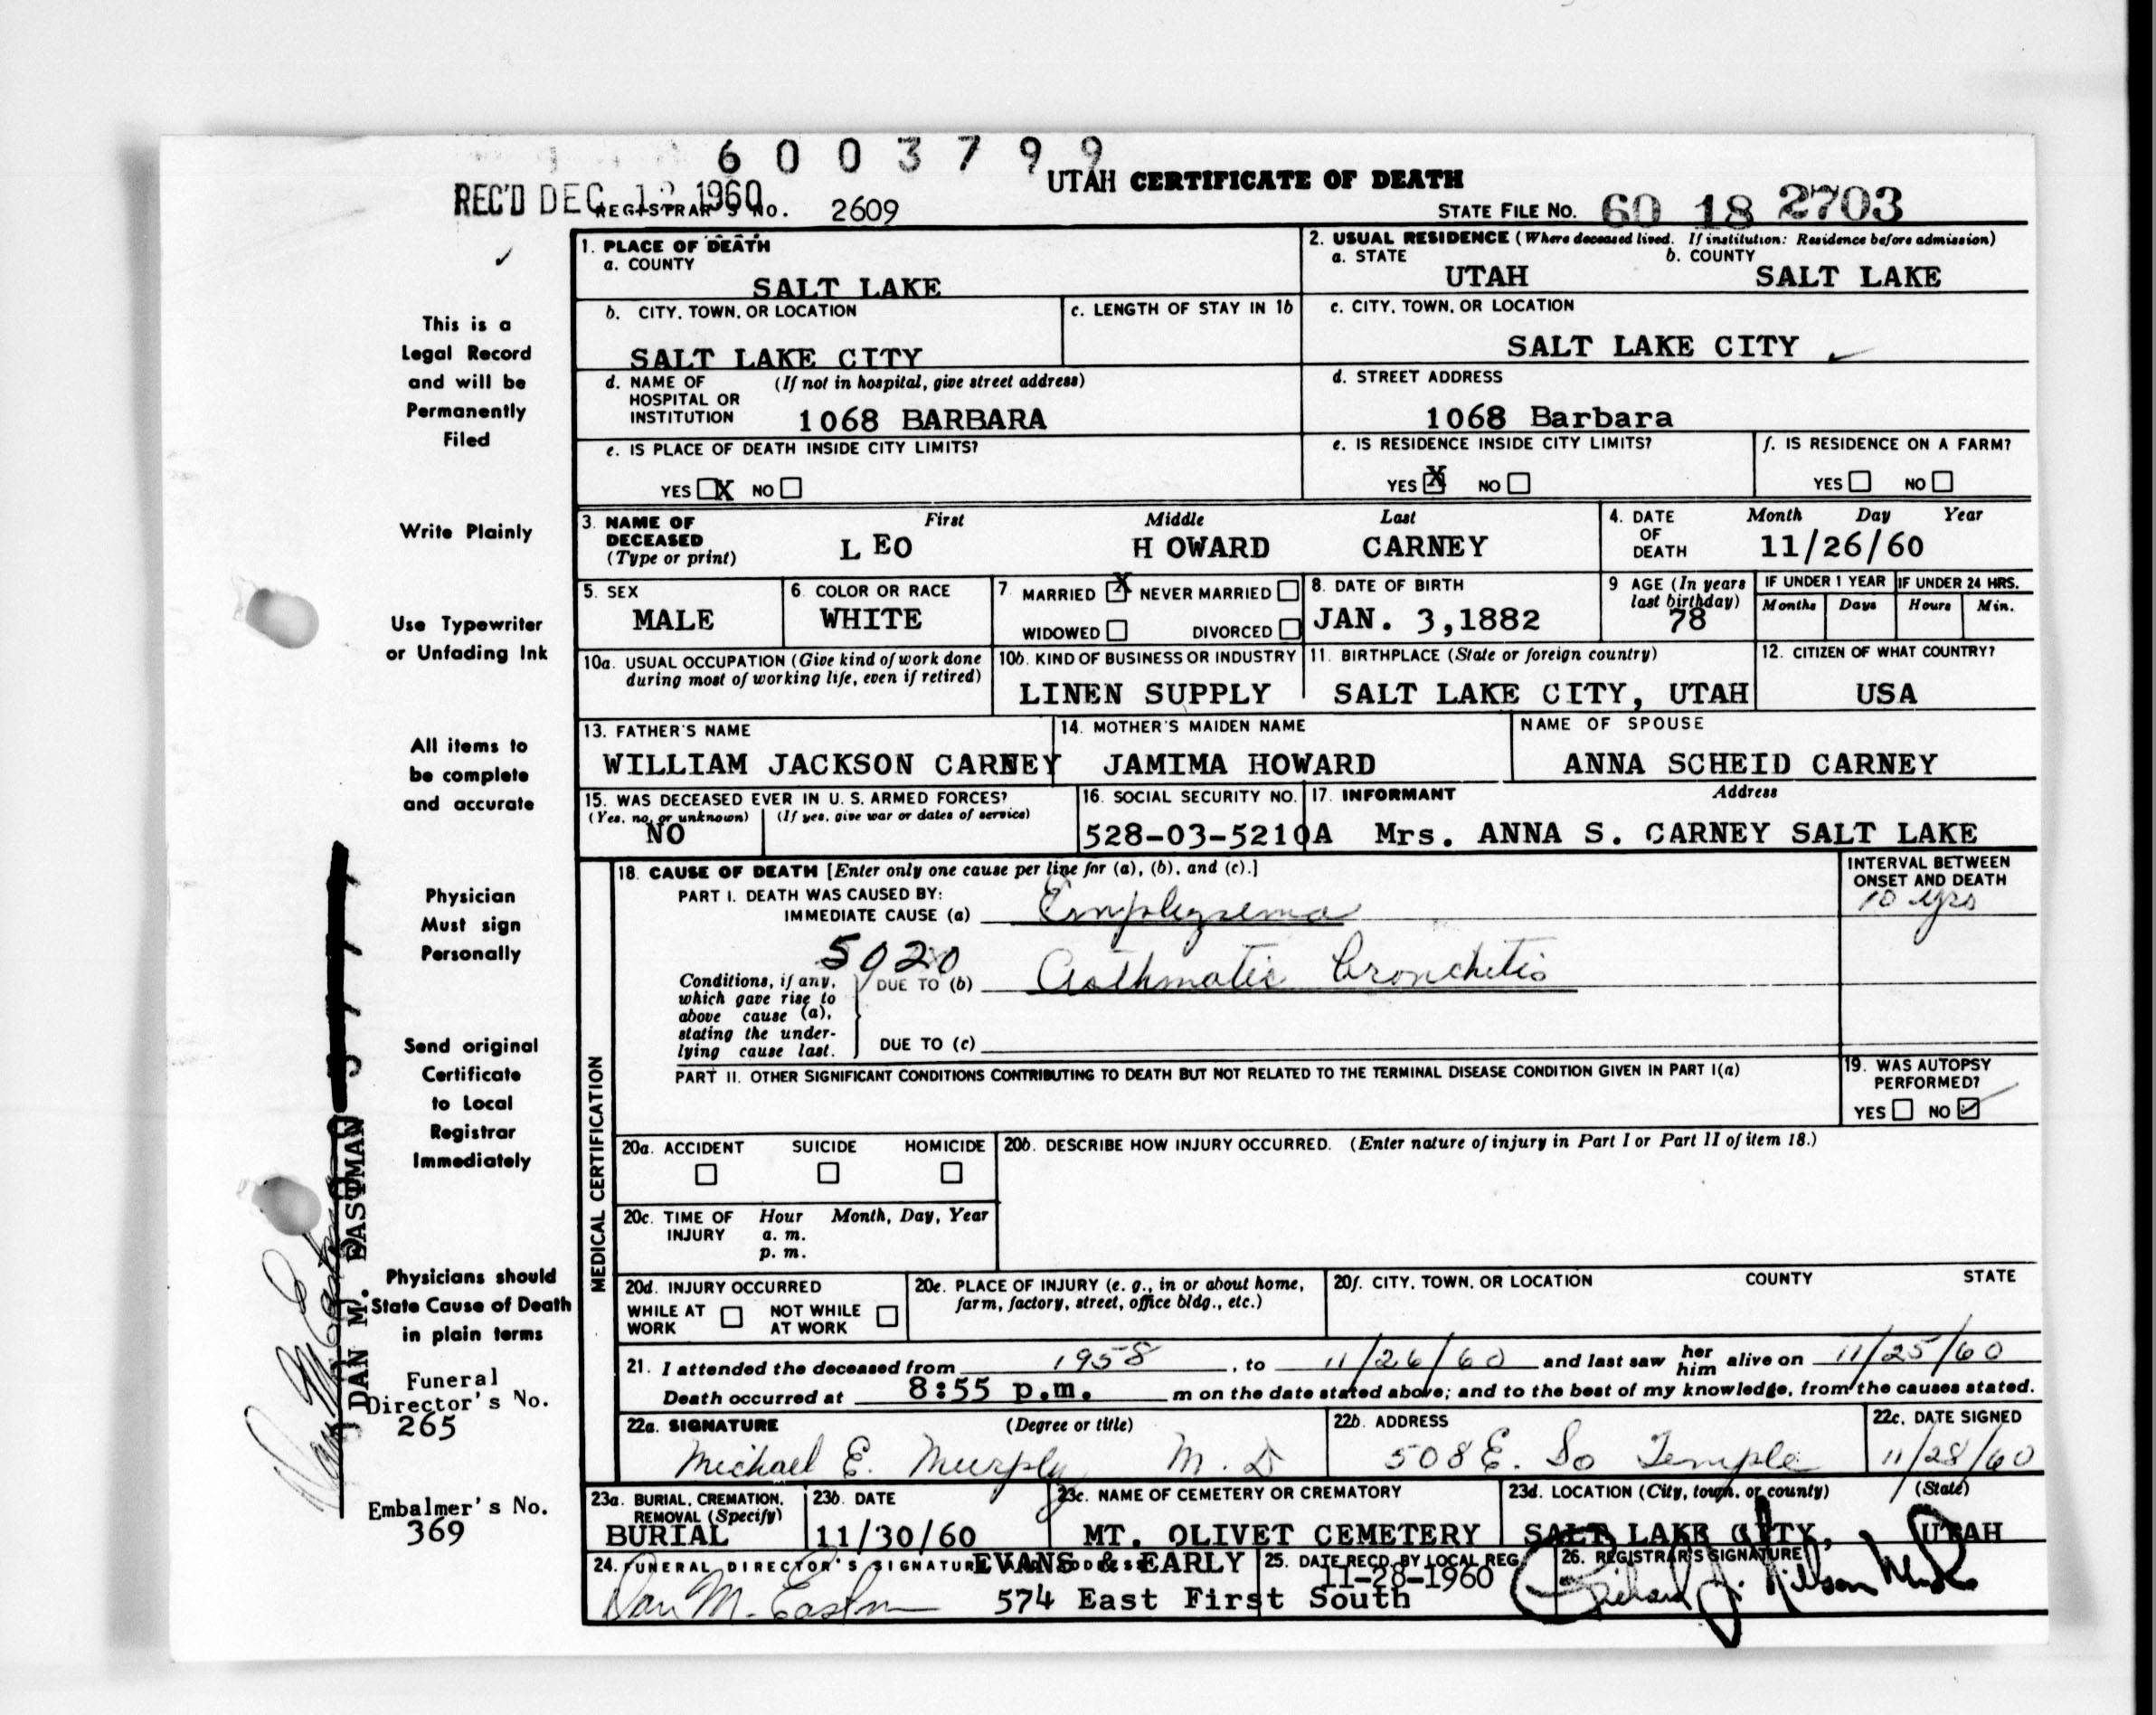 6003799
REC'D DEC 12 1960
UTAH CERTIFICATE OF DEATH
REGISTRAR'S NO. 2609
STATE FILE NO. 60 18 2703
This is a
Legal Record
and will be
Permanently
Filed
Write Plainly
Use Typewriter
or Unfading Ink
All items to
be complete
and accurate
Physician
Must sign
Personally
Send original
Certificate
to Local
Registrar
Immediately
Physicians should
State Cause of Death
in plain terms
Funeral
Director's No.
265
Embalmer's No.
369
DAN M. EASTMAN
1. PLACE OF DEATH
a. COUNTY
SALT LAKE
b. CITY, TOWN, OR LOCATION
SALT LAKE CITY
c. LENGTH OF STAY IN 1b
d. NAME OF HOSPITAL OR INSTITUTION (If not in hospital, give street address)
1068 BARBARA
e. IS PLACE OF DEATH INSIDE CITY LIMITS?
YES X NO
2. USUAL RESIDENCE (Where deceased lived. If institution: Residence before admission)
a. STATE
UTAH
b. COUNTY
SALT LAKE
c. CITY, TOWN, OR LOCATION
SALT LAKE CITY
d. STREET ADDRESS
1068 Barbara
e. IS RESIDENCE INSIDE CITY LIMITS?
YES X NO
f. IS RESIDENCE ON A FARM?
YES NO
3. NAME OF DECEASED (Type or print)
First Middle Last
L EO H OWARD CARNEY
4. DATE OF DEATH
Month Day Year
11/26/60
5. SEX
MALE
6. COLOR OR RACE
WHITE
7. MARRIED X NEVER MARRIED
WIDOWED DIVORCED
8. DATE OF BIRTH
JAN. 3,1882
9 AGE (In years last birthday)
78
IF UNDER 1 YEAR
Months Days
IF UNDER 24 HRS.
Hours Min.
10a. USUAL OCCUPATION (Give kind of work done
during most of working life, even if retired)
10b. KIND OF BUSINESS OR INDUSTRY
LINEN SUPPLY
11. BIRTHPLACE (State or foreign country)
SALT LAKE CITY, UTAH
12. CITIZEN OF WHAT COUNTRY?
USA
13. FATHER'S NAME
WILLIAM JACKSON CARNEY
14. MOTHER'S MAIDEN NAME
JAMIMA HOWARD
NAME OF SPOUSE
ANNA SCHEID CARNEY
15. WAS DECEASED EVER IN U. S. ARMED FORCES?
(Yes, no, or unknown) (If yes, give war or dates of service)
NO
16. SOCIAL SECURITY NO.
528-03-5210A
17. INFORMANT Address
Mrs. ANNA S. CARNEY SALT LAKE
MEDICAL CERTIFICATION
18. CAUSE OF DEATH [Enter only one cause per line for (a), (b), and (c).]
INTERVAL BETWEEN
ONSET AND DEATH
PART I. DEATH WAS CAUSED BY:
IMMEDIATE CAUSE (a) Emphysema
10 yrs
5020
Conditions, if any,
which gave rise to
above cause (a),
stating the under-
lying cause last.
DUE TO (b) Asthmatic bronchitis
DUE TO (c)
PART II. OTHER SIGNIFICANT CONDITIONS CONTRIBUTING TO DEATH BUT NOT RELATED TO THE TERMINAL DISEASE CONDITION GIVEN IN PART I(a)
19. WAS AUTOPSY
PERFORMED?
YES NO ✓
20a. ACCIDENT SUICIDE HOMICIDE
20b. DESCRIBE HOW INJURY OCCURRED. (Enter nature of injury in Part I or Part II of item 18.)
20c. TIME OF INJURY Hour Month, Day, Year
a. m.
p. m.
20d. INJURY OCCURRED
WHILE AT WORK NOT WHILE AT WORK
20e. PLACE OF INJURY (e. g., in or about home,
farm, factory, street, office bldg., etc.)
20f. CITY, TOWN, OR LOCATION COUNTY STATE
21. I attended the deceased from 1958, to 11/26/60 and last saw her him alive on 11/25/60
Death occurred at 8:55 p.m. m on the date stated above; and to the best of my knowledge, from the causes stated.
22a. SIGNATURE (Degree or title)
Michael E. Murphy M. D
22b. ADDRESS
508 E. So Temple
22c. DATE SIGNED
11/28/60
23a. BURIAL, CREMATION,
REMOVAL (Specify)
BURIAL
23b. DATE
11/30/60
23c. NAME OF CEMETERY OR CREMATORY
MT. OLIVET CEMETERY
23d. LOCATION (City, town, or county) (State)
SALT LAKE CITY, UTAH
24. FUNERAL DIRECTOR'S SIGNATURE AND ADDRESS
EVANS & EARLY
Dan M. Eastman
574 East First South
25. DATE RECD. BY LOCAL REG.
11-28-1960
26. REGISTRAR'S SIGNATURE